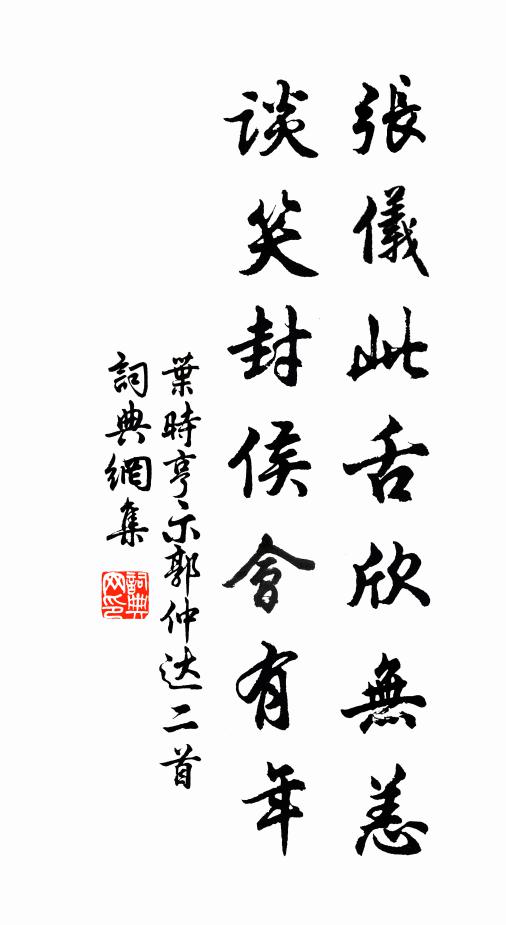 張儀此舌欣無恙
談笑封侯會有年
葉時亨示郭仲达二首
詞典網集
詞典网印